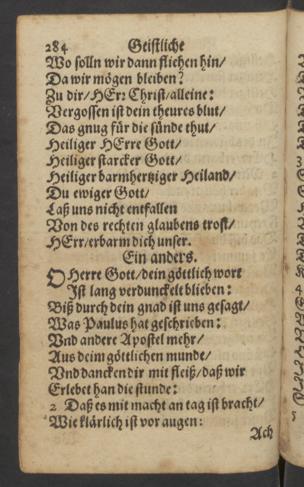 284 Geistliche
Wo solln wir dann fliehen hin/
Da wir mögen bleiben?
Zu dir/HErr Christ/alleine:
Vergossen ist dein theures blut/
Das gnug für die sünde thut/
Heiliger HErre Gott/
Heiliger starcker Gott/
Heiliger barmhertziger Heiland/
Du ewiger Gott/
Laß uns nicht entfallen
Von des rechten glaubens trost/
HErr/erbarm dich unser.
Ein anders.
O Herre Gott/dein göttlich wort
Ist lang verdunckelt blieben:
Biß durch dein gnad ist uns gesagt/
Was Paulus hat geschrieben:
Vnd andere Apostel mehr/
Aus deim göttlichen munde/
Vnd dancken dir mit fleiß/daß wir
Erlebet han die stunde:
2 Daß es mit macht an tag ist bracht/
Wie klärlich ist vor augen:
Ach